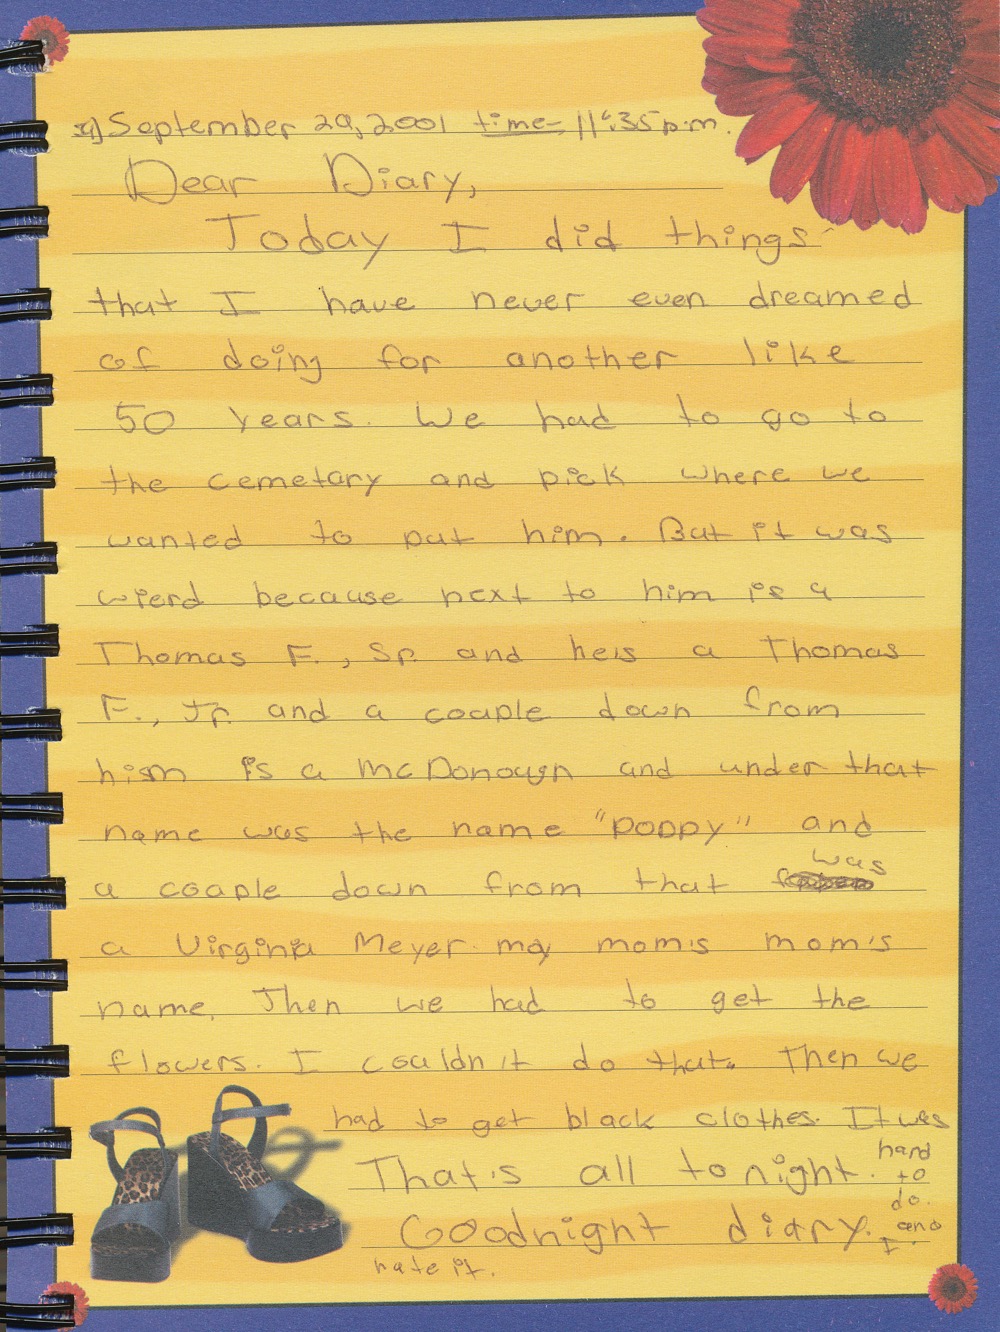 September 29, 2001 time- 11:35 p.m.
Dear Diary,
Today I did things
that I have never even dreamed
of doing for another like
50 years. We had to go to
the cemetary and pick where we
wanted to put him. But it was
wierd because next to him is a
Thomas F., Sr. and he's a Thomas
F., Jr. and a couple down from
him is a McDonough and under that
name was the name "Poppy" and
a couple down from that was
a Virginia Meyer my mom's mom's
name. Then we had to get the
flowers. I couldn't do that. Then we
had to get black clothes. It was
hard
to
do. and
I
hate it.
That's all tonight.
Goodnight diary.